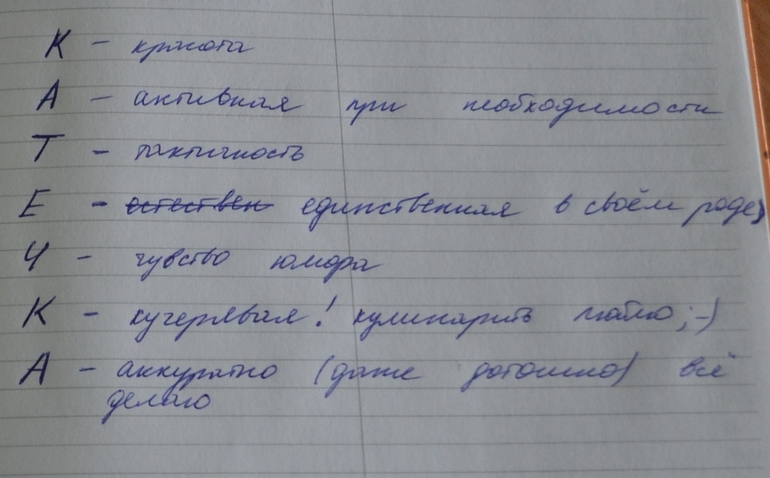 К - красота
А - активная при необходимости
Т - тактичность
Е - естествен единственная в своём роде)
Ч - чувство юмора
К - кучерявая! кулинарить люблю ;-)
А - аккуратно (даже дотошно) всё
делаю